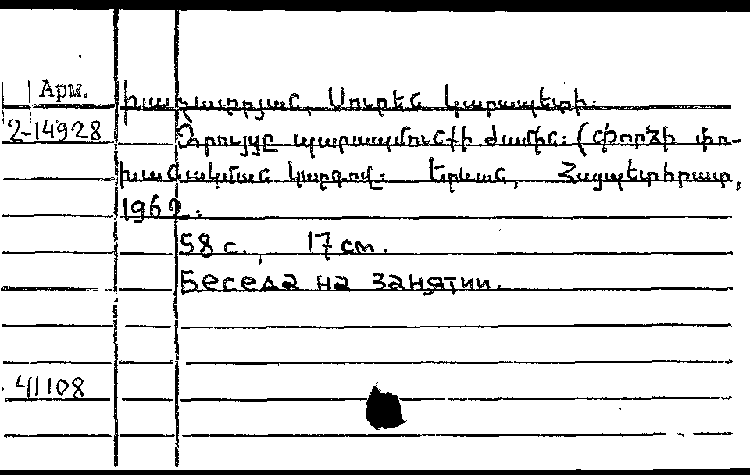 Арм.
Խաչատրյան, Սուրեն Կարապետի.
2-14928
Զրույցը պարապմունքի ժամին: (Փորձի փո-
խանակման կարգով: Երևան, Հայպետհրատ,
1962.
58 с., 17 см.
Беседа на занятии.
41108